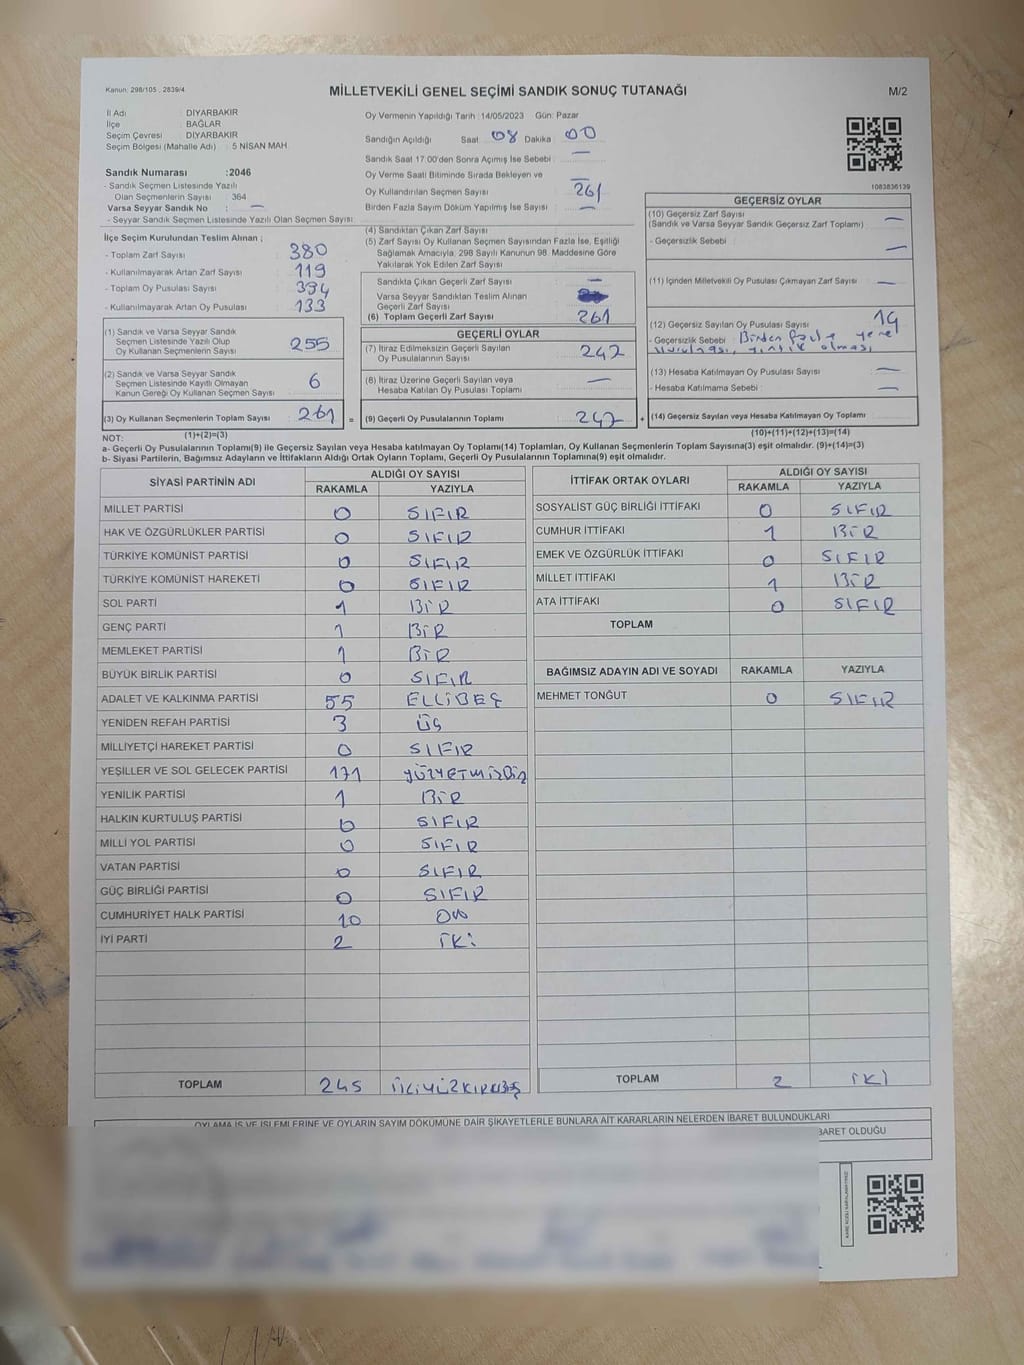 Kanun: 298/105 , 2839/4
MİLLETVEKİLİ GENEL SEÇİMİ SANDIK SONUÇ TUTANAĞI
M/2
İl Adı : DİYARBAKIR
İlçe : BAĞLAR
Seçim Çevresi : DİYARBAKIR
Seçim Bölgesi (Mahalle Adı) : 5 NİSAN MAH.
Sandık Numarası :2046
- Sandık Seçmen Listesinde Yazılı
Olan Seçmenlerin Sayısı : 364
Varsa Seyyar Sandık No : —
- Seyyar Sandık Seçmen Listesinde Yazılı Olan Seçmen Sayısı :
Oy Vermenin Yapıldığı Tarih :14/05/2023 Gün: Pazar
Sandığın Açıldığı Saat 08 Dakika 00
Sandık Saat 17:00'den Sonra Açılmış İse Sebebi : —
Oy Verme Saati Bitiminde Sırada Bekleyen ve —
Oy Kullandırılan Seçmen Sayısı 261
Birden Fazla Sayım Döküm Yapılmış İse Sayısı : —
1083836139
İlçe Seçim Kurulundan Teslim Alınan ;
- Toplam Zarf Sayısı : 380
- Kullanılmayarak Artan Zarf Sayısı : 119
- Toplam Oy Pusulası Sayısı : 394
- Kullanılmayarak Artan Oy Pusulası : 133
(1) Sandık ve Varsa Seyyar Sandık
Seçmen Listesinde Yazılı Olup
Oy Kullanan Seçmenlerin Sayısı 255
(2) Sandık ve Varsa Seyyar Sandık
Seçmen Listesinde Kayıtlı Olmayan
Kanun Gereği Oy Kullanan Seçmen Sayısı 6
(3) Oy Kullanan Seçmenlerin Toplam Sayısı 261 =
(1)+(2)=(3)
(4) Sandıktan Çıkan Zarf Sayısı
(5) Zarf Sayısı Oy Kullanan Seçmen Sayısından Fazla İse, Eşitliği
Sağlamak Amacıyla, 298 Sayılı Kanunun 98. Maddesine Göre
Yakılarak Yok Edilen Zarf Sayısı
Sandıkta Çıkan Geçerli Zarf Sayısı —
Varsa Seyyar Sandıktan Teslim Alınan
Geçerli Zarf Sayısı
(6) Toplam Geçerli Zarf Sayısı 261
GEÇERLİ OYLAR
(7) İtiraz Edilmeksizin Geçerli Sayılan
Oy Pusulasının Sayısı 247
(8) İtiraz Üzerine Geçerli Sayılan veya
Hesaba Katılan Oy Pusulası Toplamı —
(9) Geçerli Oy Pusulalarının Toplamı 247 +
GEÇERSİZ OYLAR
(10) Geçersiz Zarf Sayısı
(Sandık ve Varsa Seyyar Sandık Geçersiz Zarf Toplamı) —
- Geçersizlik Sebebi : —
(11) İçinden Milletvekili Oy Pusulası Çıkmayan Zarf Sayısı : —
(12) Geçersiz Sayılan Oy Pusulası Sayısı : 14
- Geçersizlik Sebebi : Birden fazla yere
vurulması, yırtık olması
(13) Hesaba Katılmayan Oy Pusulası Sayısı : —
- Hesaba Katılmama Sebebi : —
(14) Geçersiz Sayılan veya Hesaba Katılmayan Oy Toplamı
(10)+(11)+(12)+(13)=(14)
NOT:
a- Geçerli Oy Pusulalarının Toplamı(9) ile Geçersiz Sayılan veya Hesaba katılmayan Oy Toplamı(14) Toplamları, Oy Kullanan Seçmenlerin Toplam Sayısına(3) eşit olmalıdır. (9)+(14)=(3)
b- Siyasi Partilerin, Bağımsız Adayların ve İttifakların Aldığı Ortak Oyların Toplamı, Geçerli Oy Pusulalarının Toplamına(9) eşit olmalıdır.
SİYASİ PARTİNİN ADI ALDIĞI OY SAYISI
RAKAMLA YAZIYLA
MİLLET PARTİSİ 0 SIFIR
HAK VE ÖZGÜRLÜKLER PARTİSİ 0 SIFIR
TÜRKİYE KOMÜNİST PARTİSİ 0 SIFIR
TÜRKİYE KOMÜNİST HAREKETİ 0 SIFIR
SOL PARTİ 1 BİR
GENÇ PARTİ 1 BİR
MEMLEKET PARTİSİ 1 BİR
BÜYÜK BİRLİK PARTİSİ 0 SIFIR
ADALET VE KALKINMA PARTİSİ 55 ELLİBEŞ
YENİDEN REFAH PARTİSİ 3 ÜÇ
MİLLİYETÇİ HAREKET PARTİSİ 0 SIFIR
YEŞİLLER VE SOL GELECEK PARTİSİ 171 YÜZYETMİŞBİR
YENİLİK PARTİSİ 1 BİR
HALKIN KURTULUŞ PARTİSİ 0 SIFIR
MİLLİ YOL PARTİSİ 0 SIFIR
VATAN PARTİSİ 0 SIFIR
GÜÇ BİRLİĞİ PARTİSİ 0 SIFIR
CUMHURİYET HALK PARTİSİ 10 ON
İYİ PARTİ 2 İKİ
TOPLAM 245 İKİYÜZKIRKBEŞ
İTTİFAK ORTAK OYLARI ALDIĞI OY SAYISI
RAKAMLA YAZIYLA
SOSYALİST GÜÇ BİRLİĞİ İTTİFAKI 0 SIFIR
CUMHUR İTTİFAKI 1 BİR
EMEK VE ÖZGÜRLÜK İTTİFAKI 0 SIFIR
MİLLET İTTİFAKI 1 BİR
ATA İTTİFAKI 0 SIFIR
TOPLAM
BAĞIMSIZ ADAYIN ADI VE SOYADI RAKAMLA YAZIYLA
MEHMET TONĞUT 0 SIFIR
TOPLAM 2 İKİ
OYLAMA İŞ VE İŞLEMLERİNE VE OYLARIN SAYIM DÖKÜMÜNE DAİR ŞİKAYETLERLE BUNLARA AİT KARARLARIN NELERDEN İBARET BULUNDUKLARI
BARET OLDUĞU